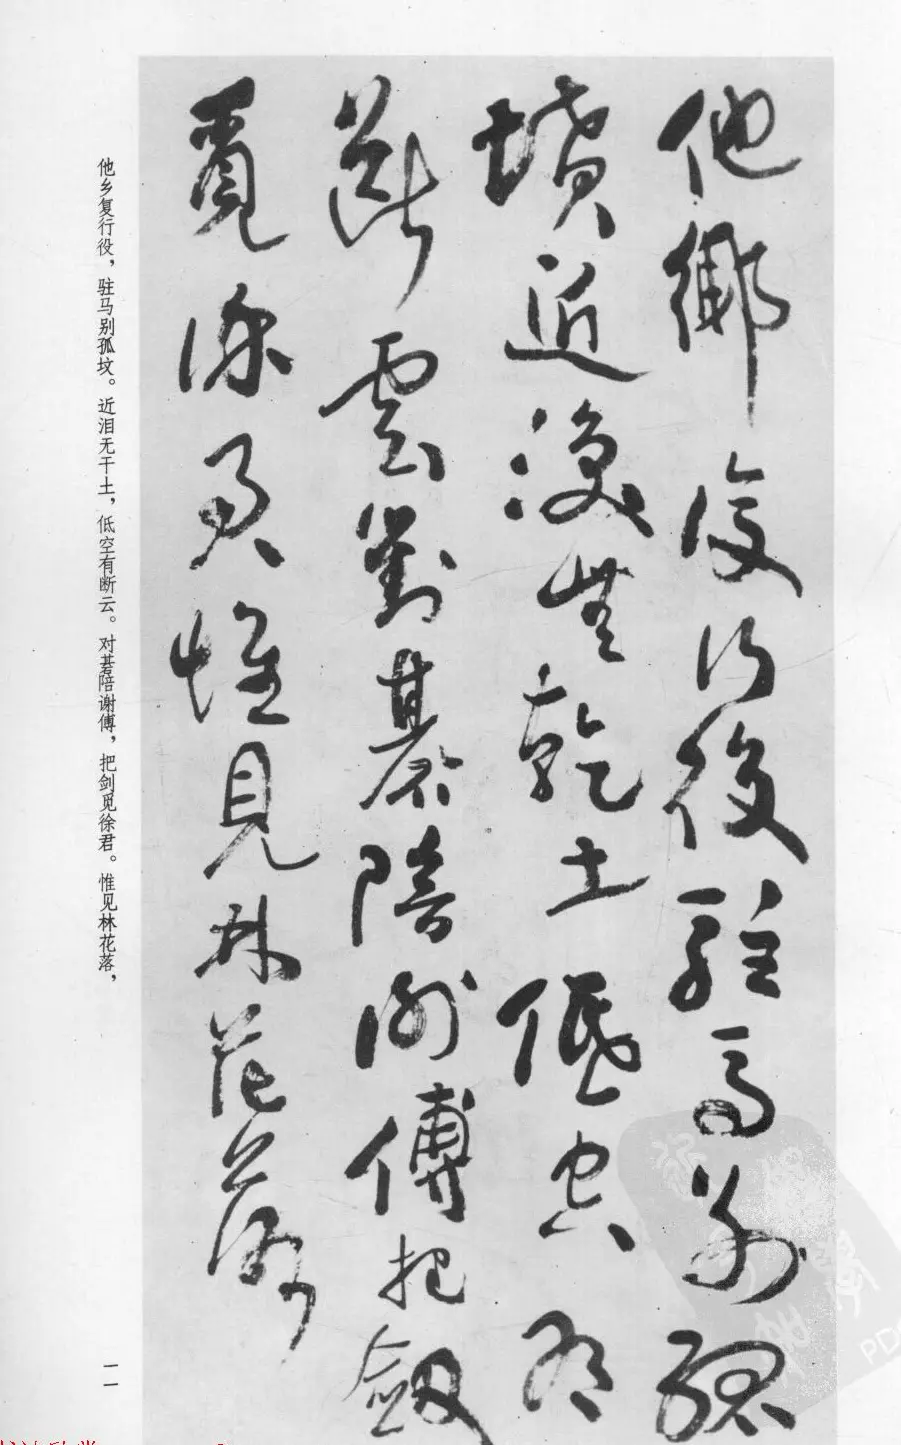 他鄉復行役駐馬別孤
墳近淚無乾土低空有
斷雲對棊陪謝傅把劔
覓徐君惟見林花落
他乡复行役，驻马别孤坟。近泪无干土，低空有断云。对棊陪谢傅，把剑觅徐君。惟见林花落，
一一